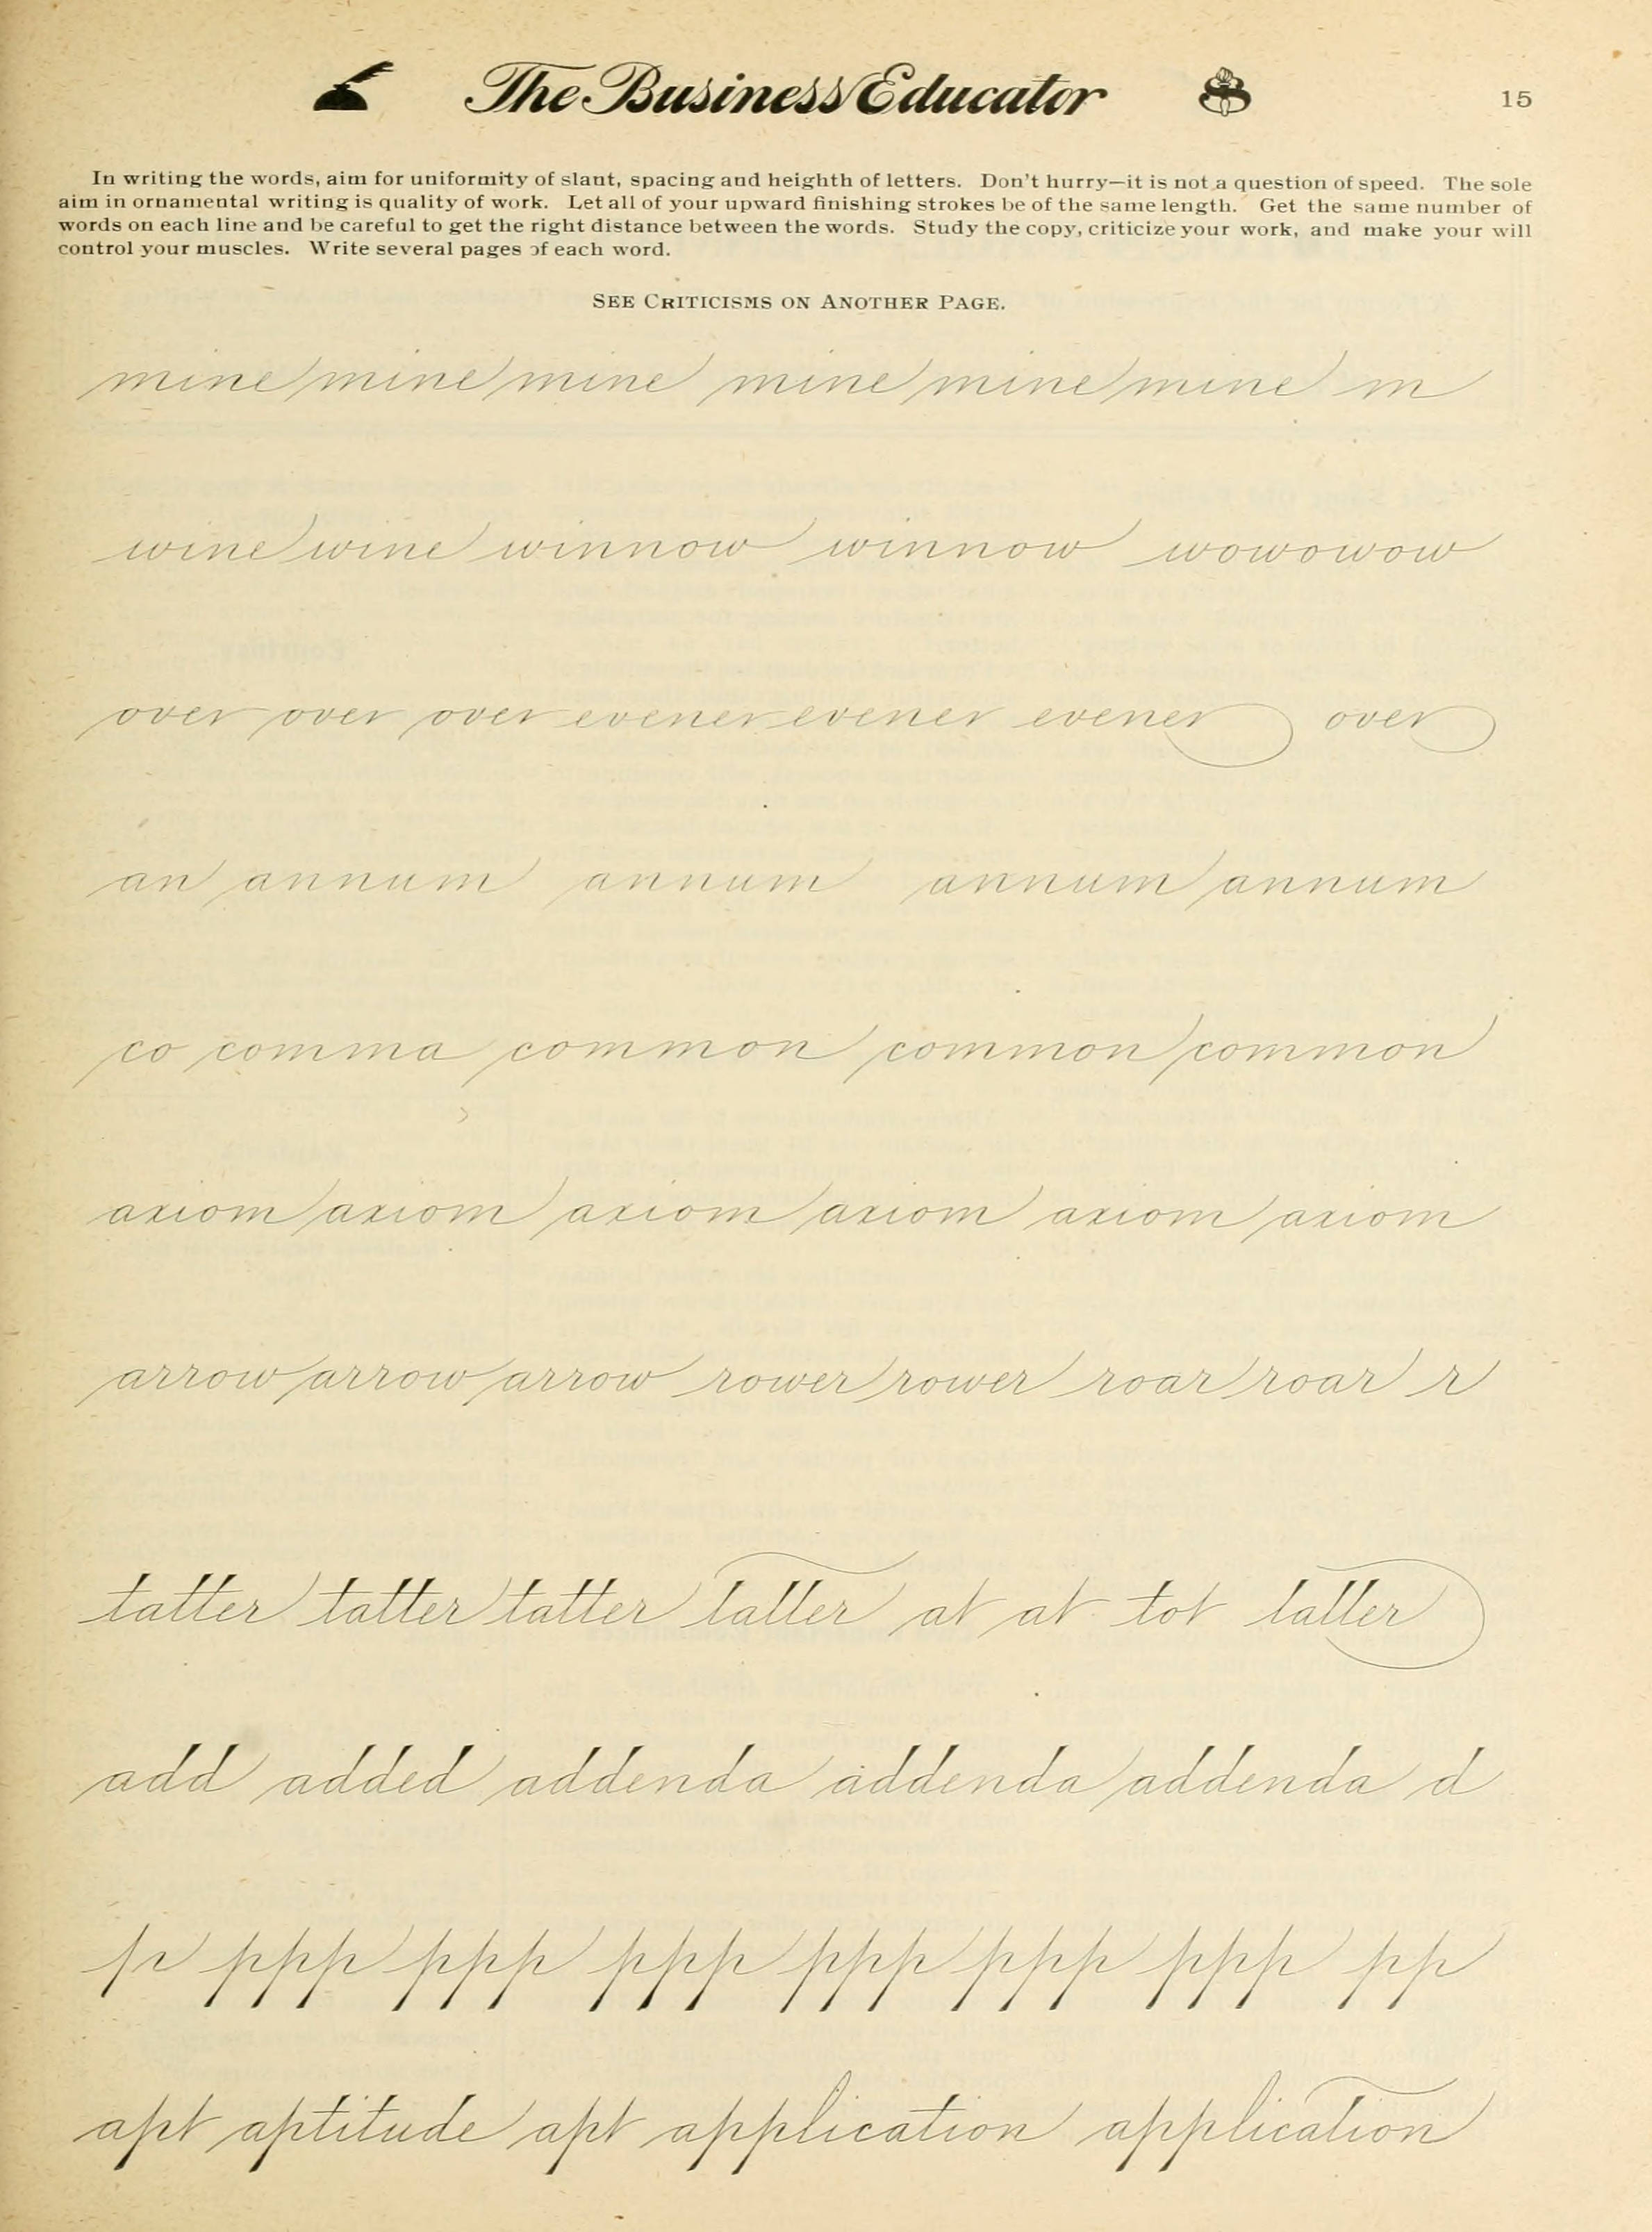 The Business Educator 15
In writing the words, aim for uniformity of slant, spacing and heighth of letters. Don't hurry—it is not a question of speed. The sole
aim in ornamental writing is quality of work. Let all of your upward finishing strokes be of the same length. Get the same number of
words on each line and be careful to get the right distance between the words. Study the copy, criticize your work, and make your will
control your muscles. Write several pages of each word.
SEE CRITICISMS ON ANOTHER PAGE.
mine mine mine mine mine mine m
wine wine winnow winnow wowowow
over over over evener evener evener over
an annum annum annum annum
co comma common common common
axiom axiom axiom axiom axiom axiom
arrow arrow arrow rower rower roar roar r
tatter tatter tatter tatter at at tot tatter
add added addenda addenda addenda d
p ppp ppp ppp ppp ppp ppp pp
apt aptitude apt application application